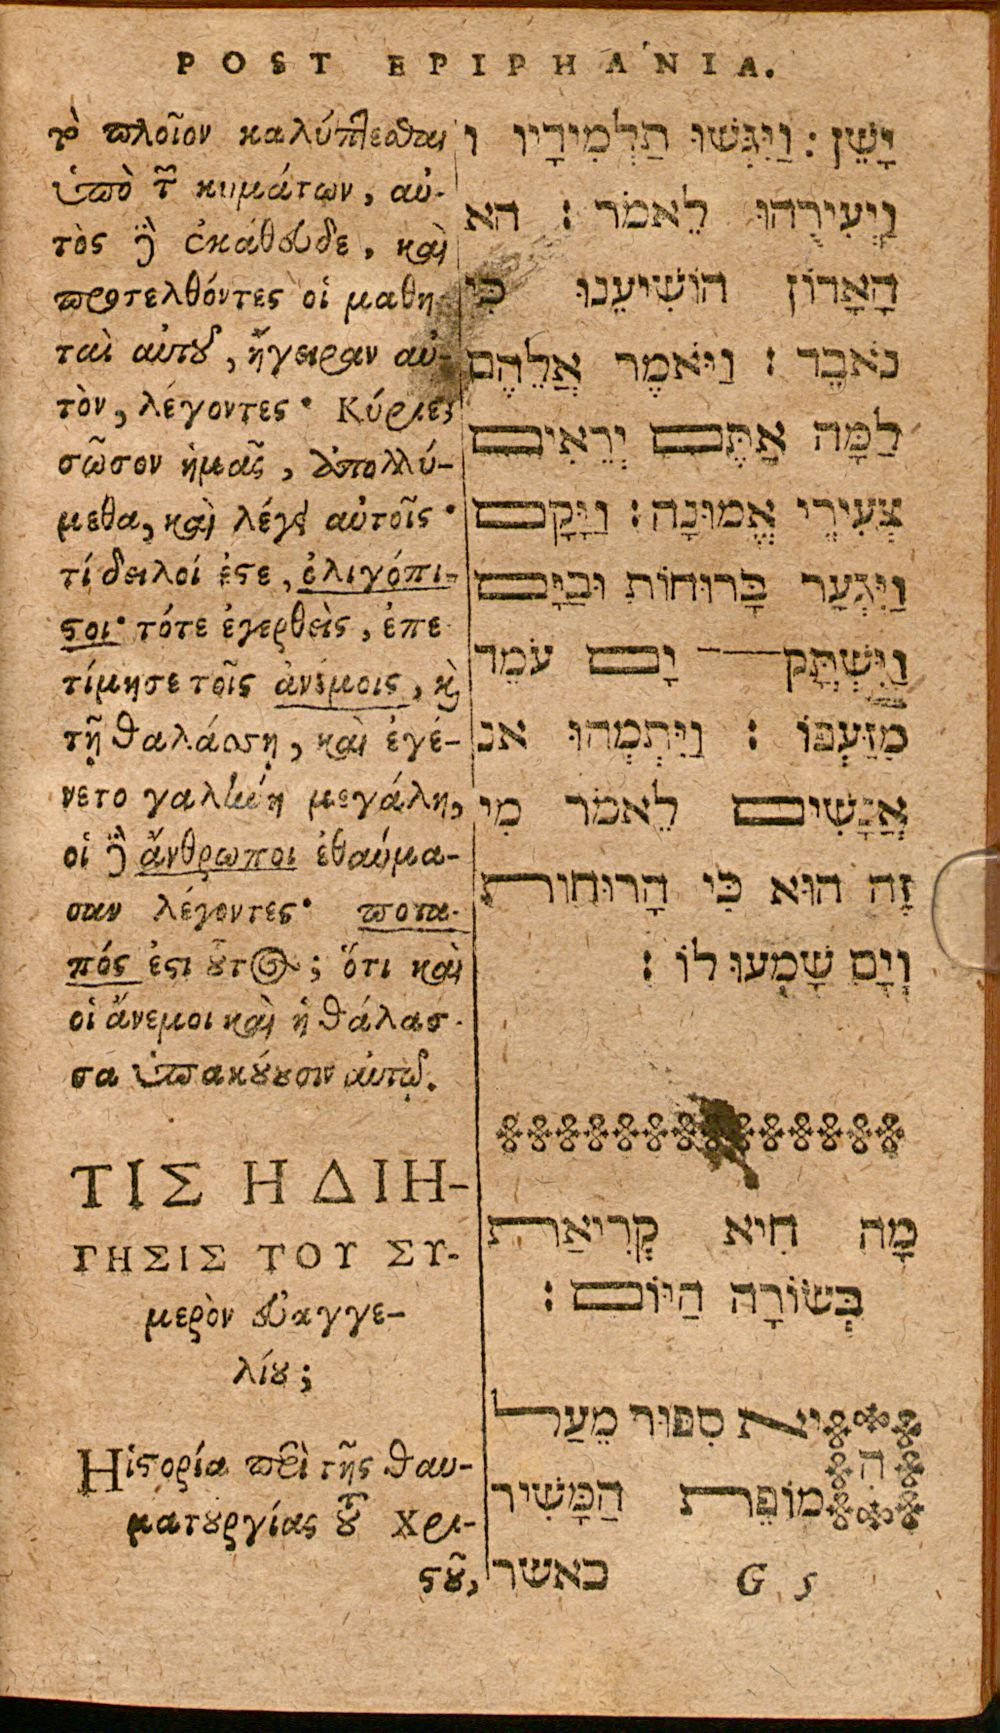 POST EPIPHANIA.
τὸ πλοῖον καλύπτεσθαι
ὑπὸ τῶν κυμάτων, αὐ-
τὸς δὲ ἐκάθευδε, καὶ
προσελθόντες οἱ μαθη-
ταὶ αὐτοῦ, ἤγειραν αὐ-
τὸν, λέγοντες· Κύριε,
σῶσον ἡμᾶς, ἀπολλύ-
μεθα, καὶ λέγει αὐτοῖς·
τί δειλοί ἐστε, ὀλιγόπι-
στοι· τότε ἐγερθεὶς, ἐπε
τίμησε τοῖς ἀνέμοις, καὶ
τῇ θαλάσσῃ, καὶ ἐγέ-
νετο γαλήνη μεγάλη,
οἱ δὲ ἄνθρωποι ἐθαύμα-
σαν λέγοντες· ποτα-
πός ἐστι οὗτος; ὅτι καὶ
οἱ ἄνεμοι καὶ ἡ θάλασ-
σα ὑπακούουσιν αὐτῷ.
ΤΙΣ Η ΔΙΗ-
ΓΗΣΙΣ ΤΟΥ ΣΥ-
μερὸν εὐαγγε-
λίου;
Ἡ ἱστορία περὶ τῆς θαυ-
ματουργίας τοῦ Χρι-
στοῦ,
יָשֵׁן : וַיִּגְּשׁוּ תַלְמִידָיו ו
וַיְעִירֻהוּ לֵאמֹר : הא
הָאָדוֹן הוֹשִׁיעֵנוּ כִּי
נֹאבֵד : וַיֹּאמֶר אֲלֵהֶם
לָמָּה אַתֶּם יְרֵאִים
צְעִירֵי אֱמוּנָה : וַיָּקָם
וַיִּגְעַר בָּרוּחוֹת וּבַיָּם
וַיִּשְׁתֹּק יָם עֹמֵד
מִזַּעְפּוֹ : וַיִּתְמְהוּ אנ
אֲנָשִׁים לֵאמֹר מִי
זֶה הוּא כִּי הָרוּחוֹת
וְיָם שָׁמְעוּ לוֹ :
מָה הִיא קְרִיאַת
בְּשׂוֹרָה הַיּוֹם :
היא סִפּוּר מֵעַל
מוֹפֵת הַמָּשִׁיר
כאשר
G 5